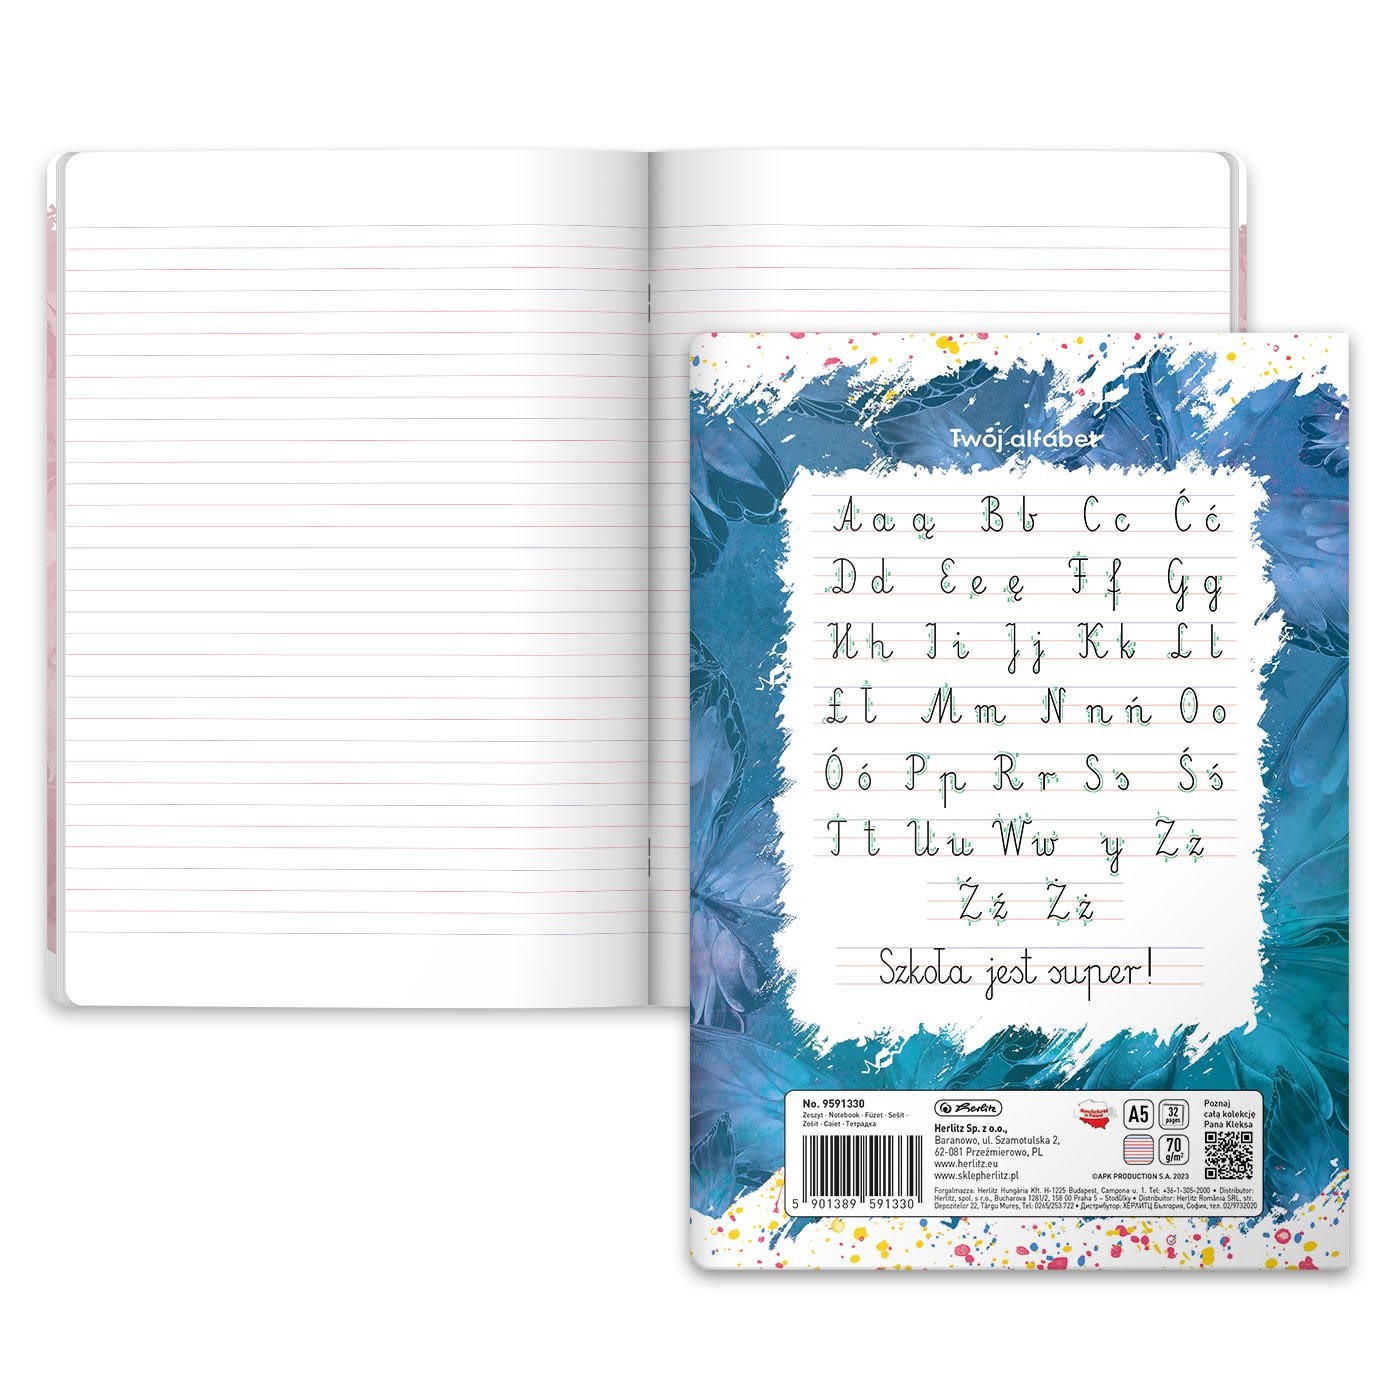 Twój alfabet
A a ą B b C c Ć ć
D d E e ę F f G g
H h I i J j K k L l
Ł ł M m N n ń O o
Ó ó P p R r S s Ś ś
T t U u W w y Z z
Ź ź Ż ż
Szkoła jest super!
No. 9591330
Zeszyt - Notebook - Füzet - Sešit -
Zošit - Caiet - Тетрадка
5 901389 591330
Herlitz
Herlitz Sp. z o.o.,
Baranowo, ul. Szamotulska 2,
62-081 Przeźmierowo, PL
www.herlitz.eu
www.sklepherlitz.pl
Manufactured in Poland
A5
32 pages
70 g/m²
©APK PRODUCTION S.A. 2023
Poznaj
całą kolekcję
Pana Kleksa
Forgalmazza: Herlitz Hungária Kft. H-1225 Budapest, Campona u. 1. Tel: +36-1-305-2000 • Distributor:
Herlitz, spol. s r.o., Bucharova 1281/2, 158 00 Praha 5 – Stodůlky • Distribuitor: Herlitz România SRL, str.
Depozitelor 22, Târgu Mureș, Tel: 0265/253.722 • Дистрибутор: ХЕРЛИТЦ България, София, тел. 02/9732020